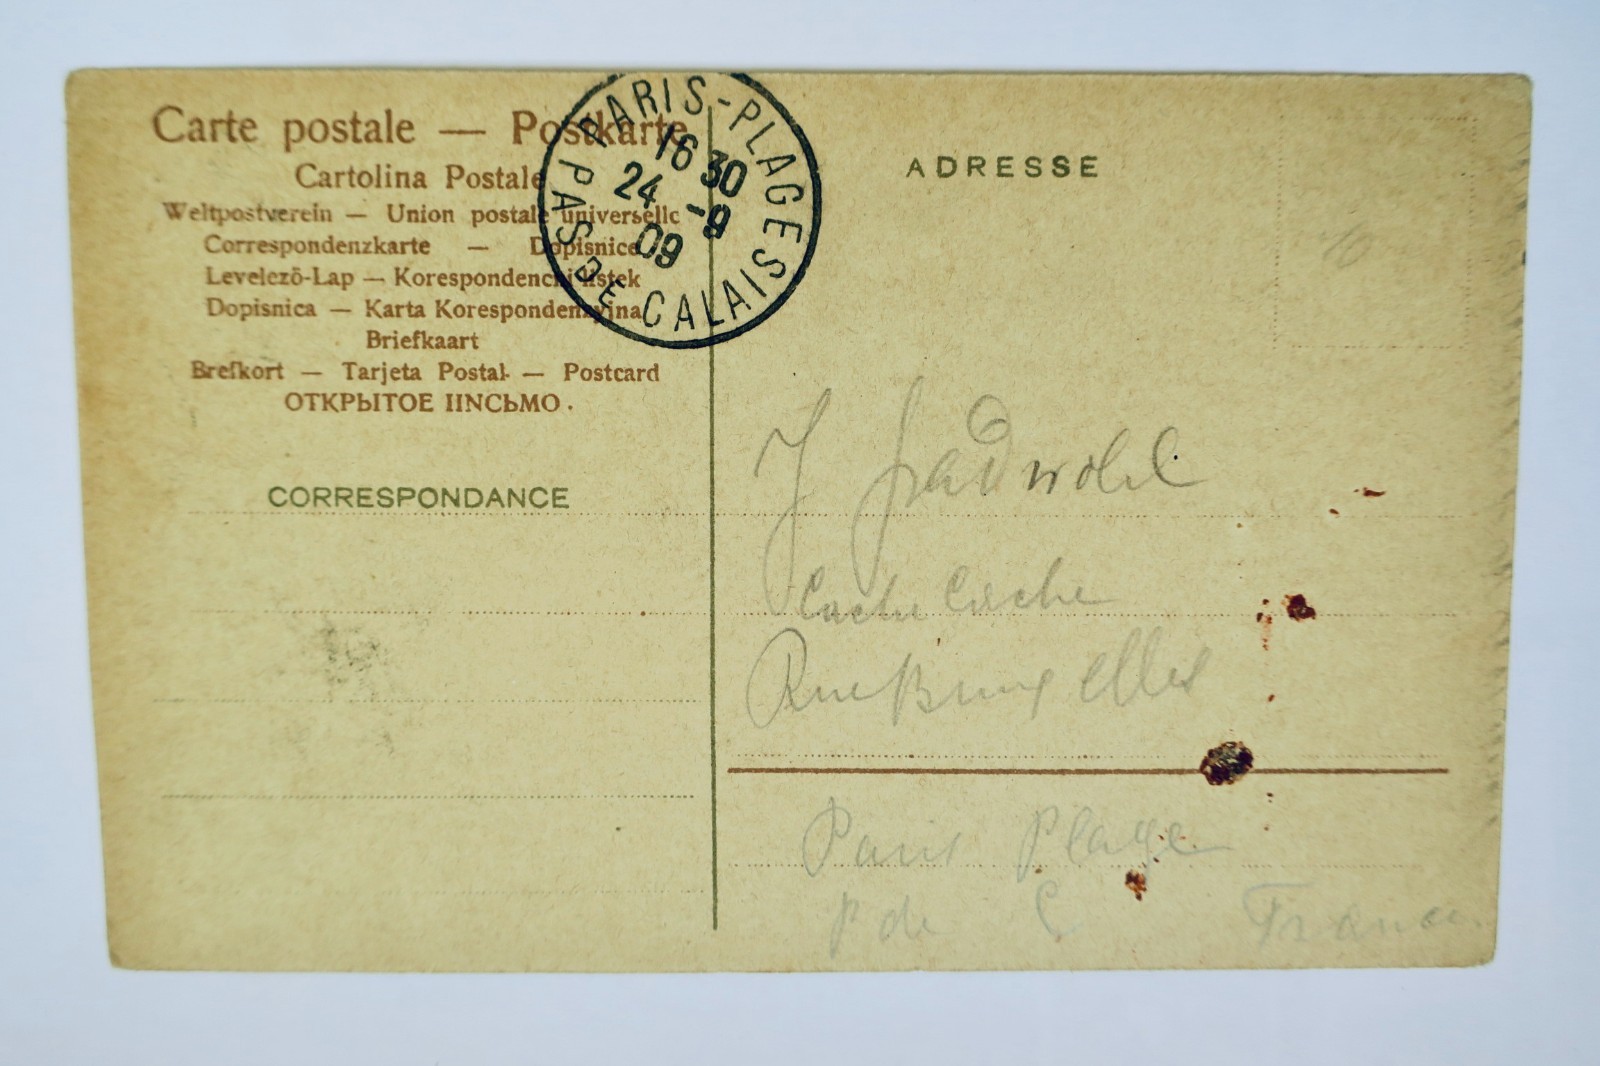 Carte postale — Postkarte
Cartolina Postale
Weltpostverein — Union postale universelle
Correspondenzkarte — Dopisnice
Levelező-Lap — Korespondenčni listek
Dopisnica — Karta Korespondenzyjna
Briefkaart
Brefkort — Tarjeta Postal — Postcard
ОТКРЫТОЕ IINCЬMO.
CORRESPONDANCE
PARIS-PLAGES
16 30
24 -9
09
PAS DE CALAIS
ADRESSE
J
Rue Bruxelles
Paris Plage
P de C France